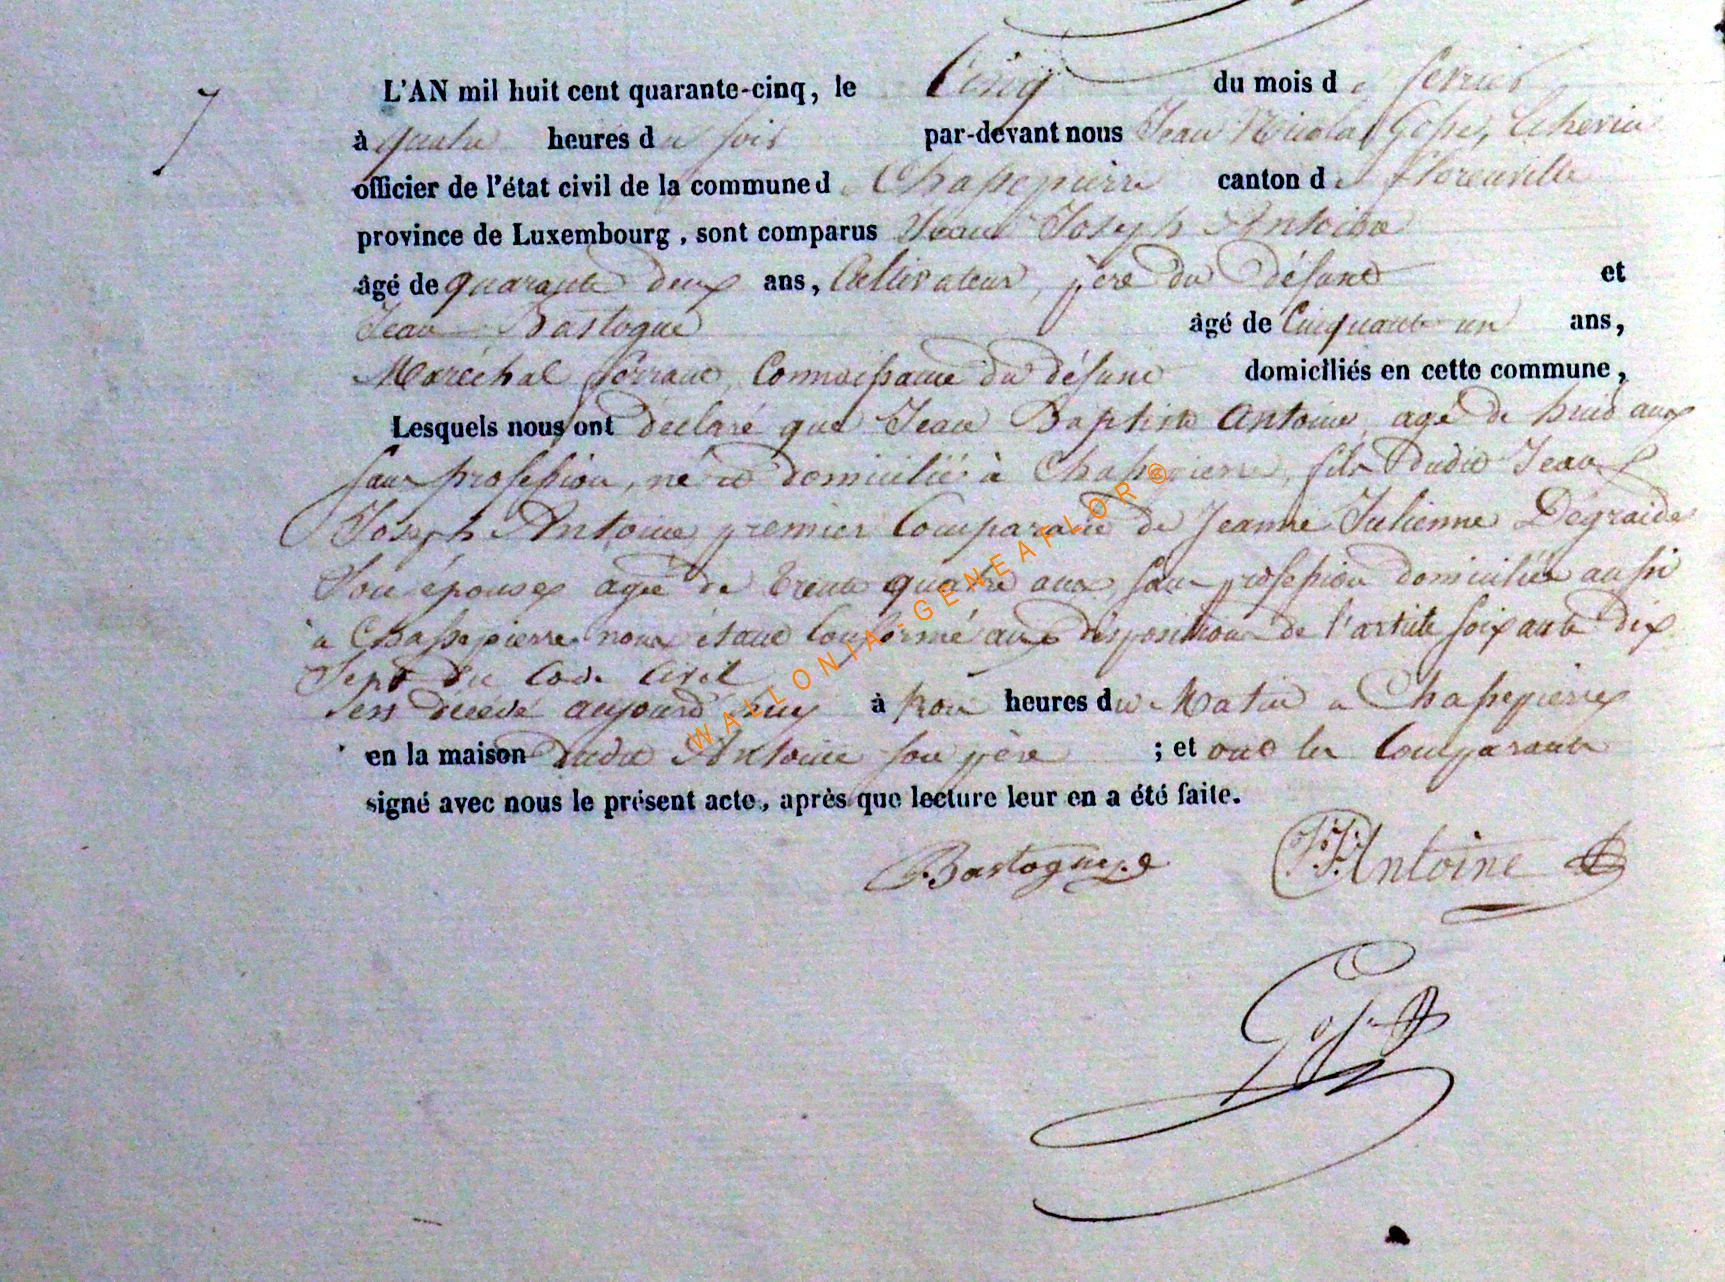 7
L'AN mil huit cent quarante-cinq, le Cinq du mois de fevrier
à quatre heures du soir par-devant nous Jean Nicolas Gofse, Echevin
officier de l'état civil de la commune d Chassepierre canton de Florenville
province de Luxembourg, sont comparus Jean Joseph Antoine
âgé de quarante deux ans, Cultivateur, père du défunt et
Jean Bastogne âgé de Cinquante un ans,
Maréchal ferrant, Connoissance du défunt domiciliés en cette commune,
Lesquels nous ont déclaré que Jean Baptiste Antoine agé de huit ans
sans profession, né et domicilié à Chassepierre, fils dudit Jean
Joseph Antoine premier Comparant de Jeanne Julienne Dégraide
Son épouse agée de trente quatre ans, sans profession domiciliée aussi
à Chassepierre nous étant Conformé aux dispositions de l'article soixante dix
Sept du Code Civil
est décédé aujourd'huy à trois heures du Matin a Chassepierre
en la maison dudit Antoine son père ; et ont les Comparants
signé avec nous le présent acte, après que lecture leur en a été faite.
Bastogne JJ Antoine
Gofse
WALLONIA-GENEAFLOR®